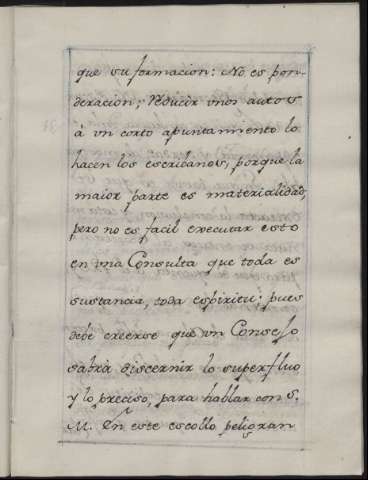 que su formacion: No es pon-
deracion; reducir unos autos
à un corto apuntamiento lo
hacen los escribanos, porque la
maior parte es materialidad,
pero no es facil executar esto
en una Consulta que toda es
sustancia, toda espiritu: pues
debe creerse que un Consejo
sabrà discernir lo superfluo,
y lo preciso, para hablar con S.
M. En este escollo peligran